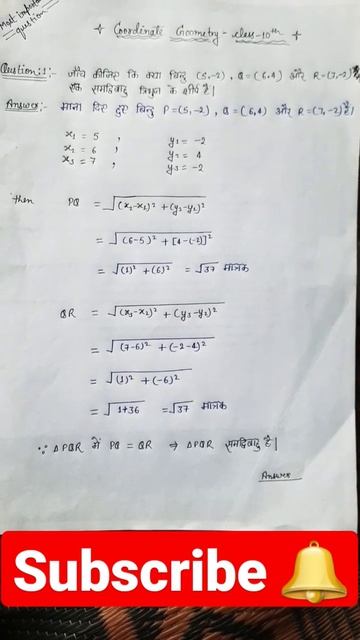 Most important
question
Coordinate Geometry - class-10th
Question:1:- जाँच कीजिए कि क्या बिन्दु (5,-2), Q=(6,4) और R=(7,-2)
एक समद्विबाहु त्रिभुज के शीर्ष है।
Answer:- माना दिए हुए बिन्दु P=(5,-2), Q=(6,4) और R=(7,-2) है।
x₁ = 5 , y₁ = -2
x₂ = 6 , y₂ = 4
x₃ = 7 , y₃ = -2
then PQ = √(x₂-x₁)² + (y₂-y₁)²
= √(6-5)² + [4-(-2)]²
= √(1)² + (6)² = √37 मात्रक
QR = √(x₃-x₂)² + (y₃-y₂)²
= √(7-6)² + (-2-4)²
= √(1)² + (-6)²
= √1+36 = √37 मात्रक
∵ △PQR में PQ = QR ⇒ △PQR समद्विबाहु है।
Answer
Subscribe